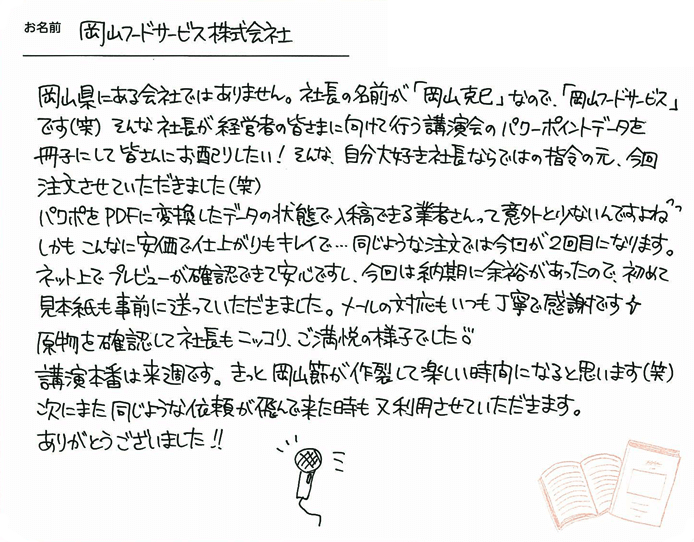 お名前 岡山フードサービス株式会社
岡山県にある会社ではありません。社長の名前が「岡山克巳」なので、「岡山フードサービス」
です(笑) そんな社長が経営者の皆さまに向けて行う講演会のパワーポイントデータを
冊子にして皆さんにお配りしたい！そんな、自分大好き社長ならではの指令の元、今回
注文させていただきました(笑)
パワポをPDFに変換したデータの状態で入稿できる業者さんって意外と少ないんですよね
しかもこんなに安価で仕上がりもキレイで…同じような注文では今回が2回目になります。
ネット上でプレビューが確認できて安心ですし、今回は納期に余裕があったので、初めて
見本紙も事前に送っていただきました。メールの対応もいつも丁寧で感謝です
原物を確認して社長もニッコリ、ご満悦の様子でした
講演本番は来週です。きっと岡山節が作裂して楽しい時間になると思います(笑)
次にまた同じような依頼が飛んで来た時も又利用させていただきます。
ありがとうございました!!